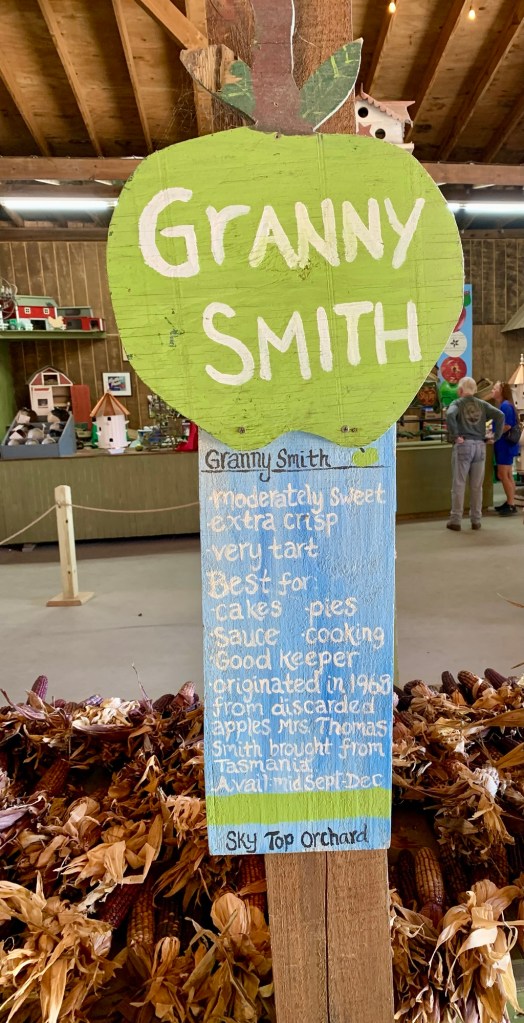 GRANNY
SMITH
Granny Smith
·moderately sweet
·extra crisp
·very tart
Best for:
·cakes ·pies
·sauce ·cooking
·Good keeper
·originated in 1968
from discarded
apples Mrs. Thomas
Smith brought from
Tasmania
·Avail: mid Sept-Dec
Sky Top Orchard